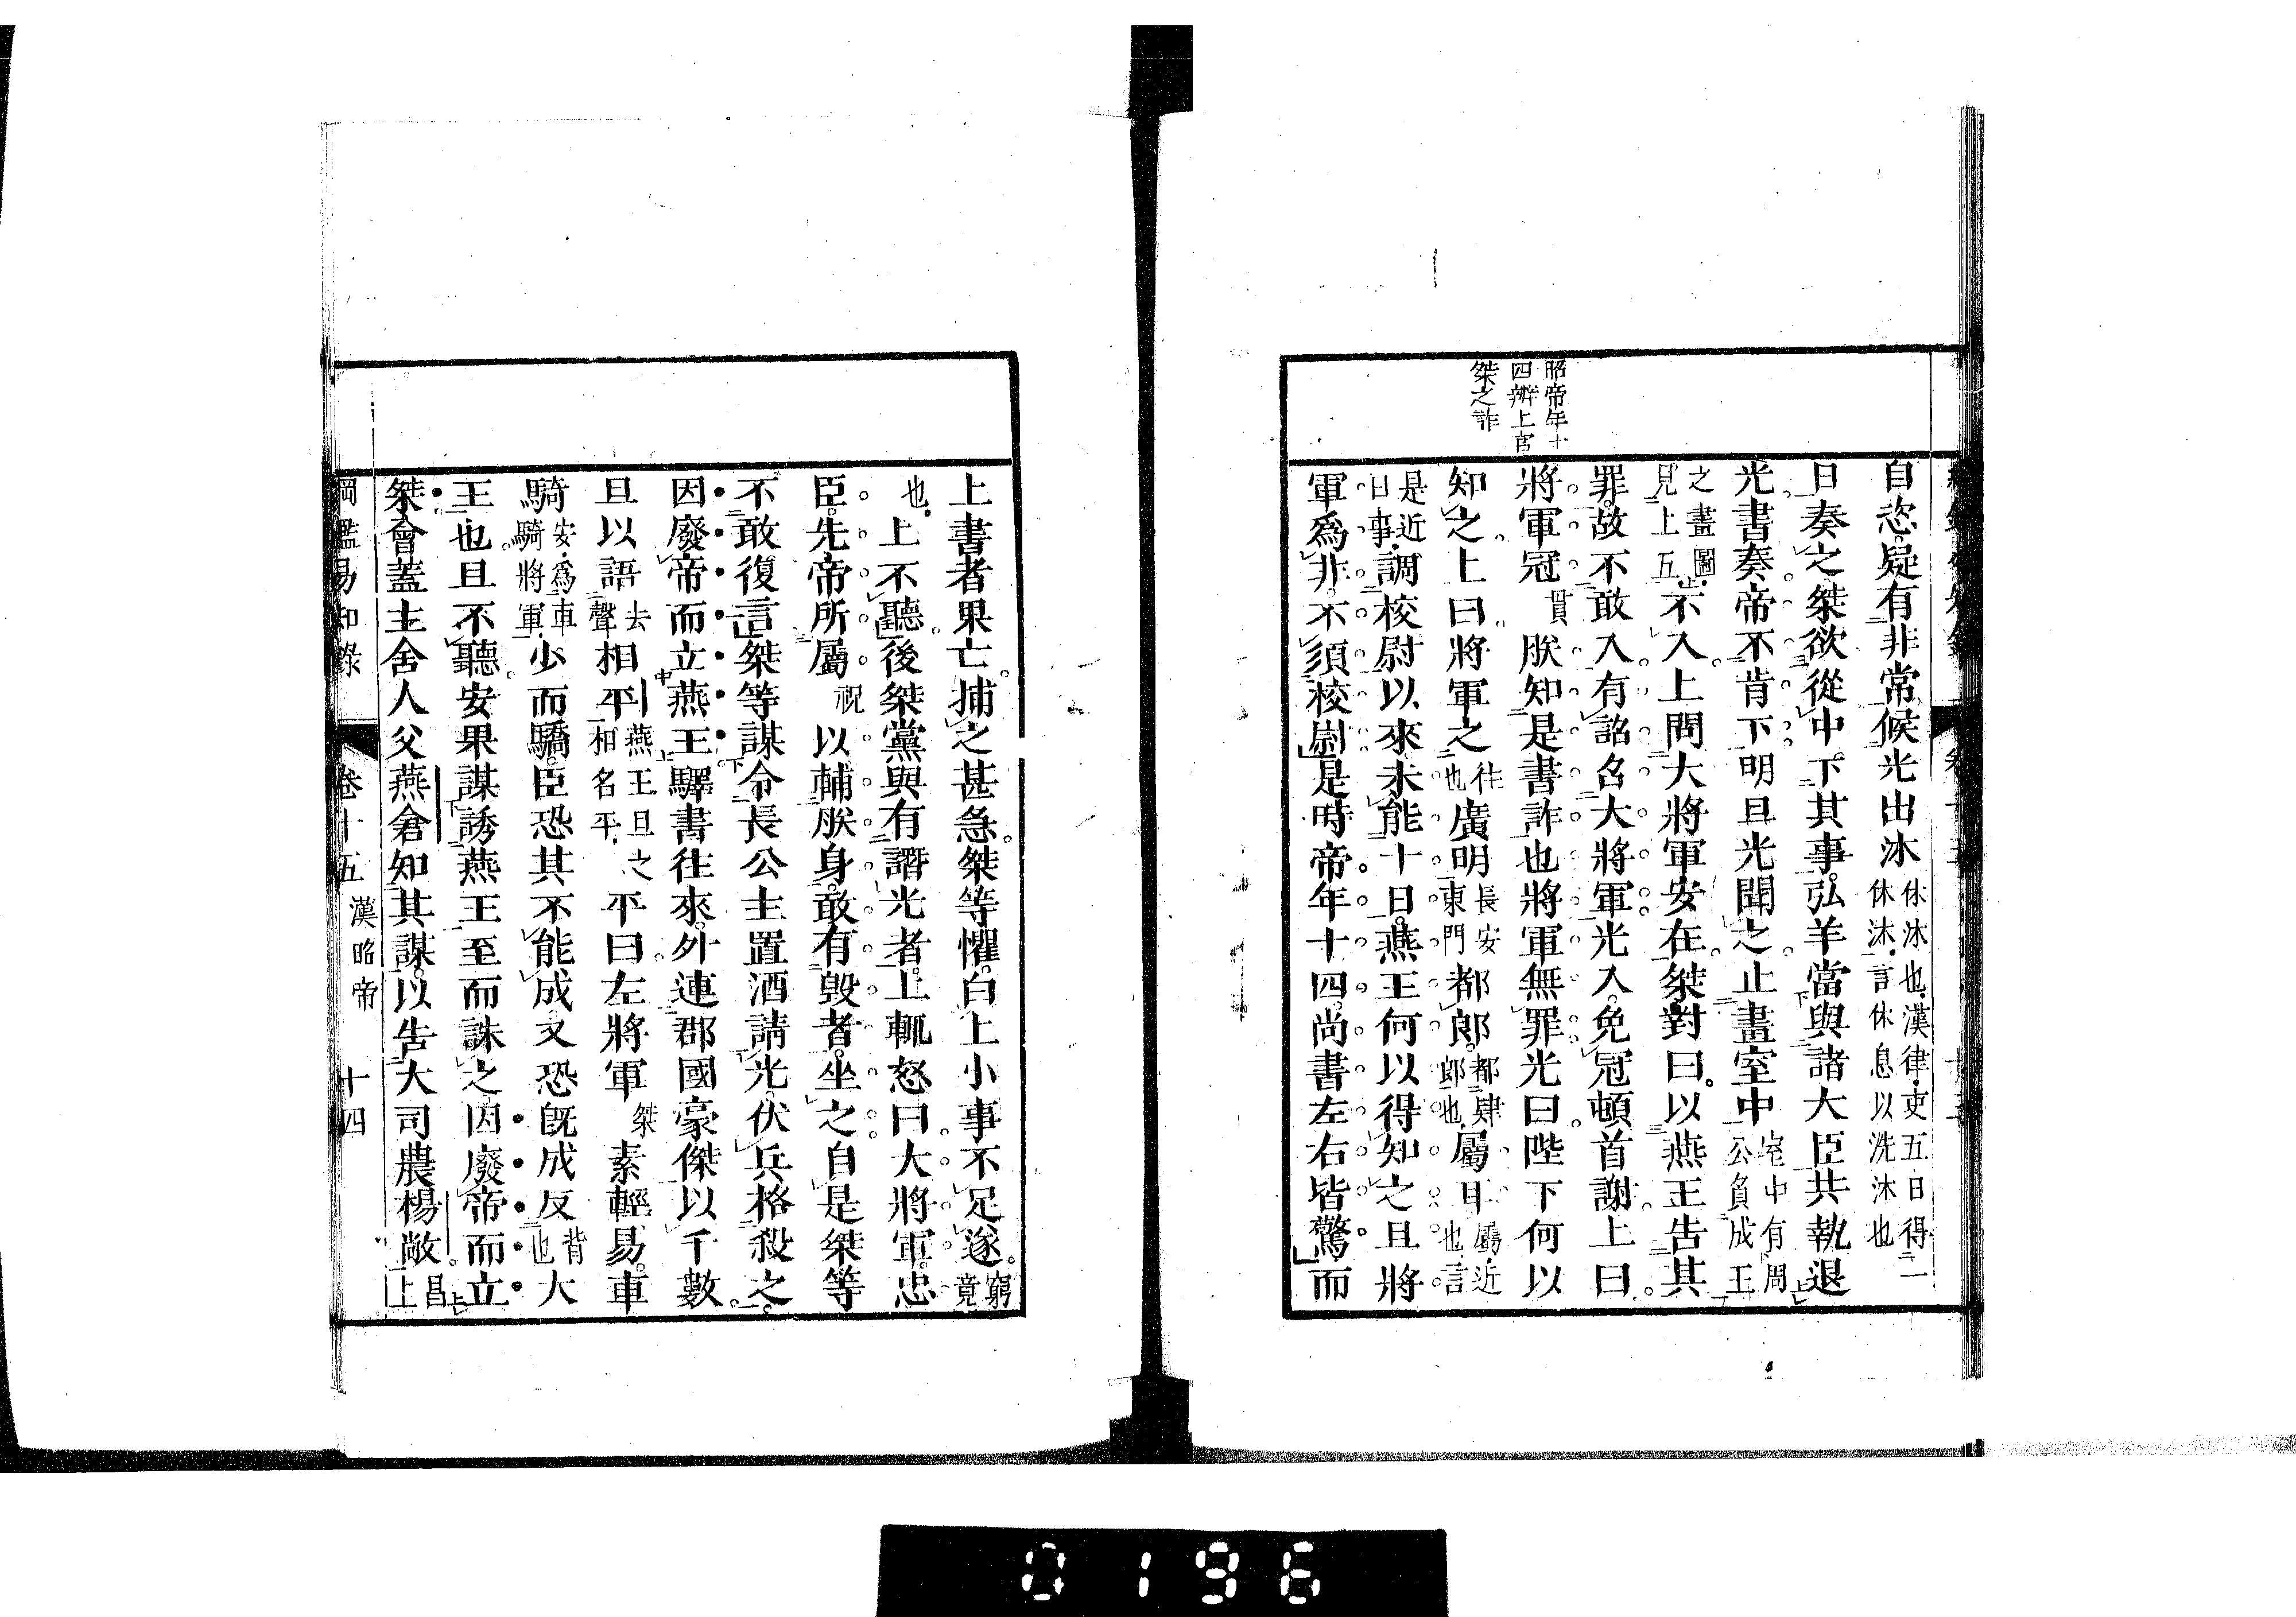 昭帝年十
四辨上官
桀之詐
自恣疑有非常候光出沐休沐也漢律吏五日得一休沐言休息以洗沐也
日奏之桀欲從中下其事弘羊當與諸大臣共執退
光書奏帝不肯下明旦光聞之止畫室中室中有周公負成王
之畫圖見上五不入上問大將軍安在桀對曰以燕王告其
罪故不敢入有詔召大將軍光入免冠頓首謝上曰
將軍冠貫朕知是書詐也將軍無罪光曰陛下何以
知之上曰將軍之往也廣明長安東門都郎都肄郎也屬耳屬近也言
是近日事調校尉以來未能十日燕王何以得知之且將
軍爲非不須校尉是時帝年十四尚書左右皆驚而
上書者果亡捕之甚急桀等懼白上小事不足遂窮竟
也上不聽後桀黨與有譖光者上輒怒曰大將軍忠
臣先帝所屬祝以輔朕身敢有毀者坐之自是桀等
不敢復言桀等謀令長公主置酒請光伏兵格殺之
因廢帝而立燕王驛書往來外連郡國豪傑以千數
旦以語去聲相平燕王旦之相名平平曰左將軍桀素輕易車
騎安爲車騎將軍少而驕臣恐其不能成又恐旣成反背也大
王也旦不聽安果謀誘燕王至而誅之因廢帝而立
桀會蓋主舍人父燕倉知其謀以告大司農楊敞昌上
綱鑑易知錄 卷十五 漢昭帝 十四